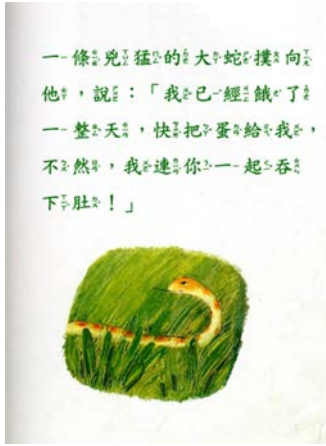 一條兇猛的大蛇撲向
他，說：「我已經餓了
一整天，快把蛋給我，
不然，我連你一起吞
下肚！」